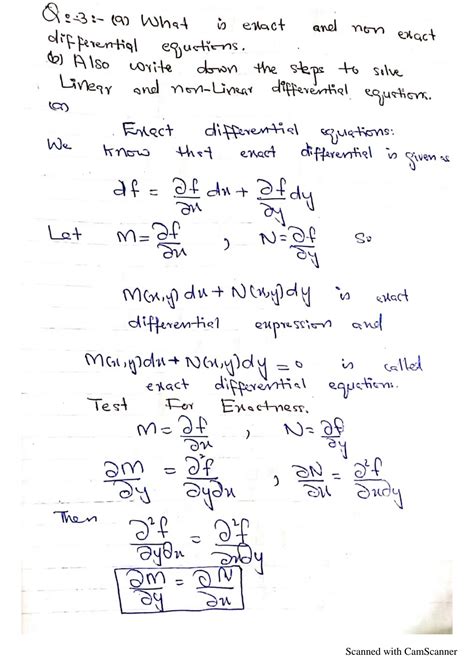 Q:-3:- (a) What is exact and non exact
differential equctions.
(b) Also write down the steps to solve
Linear and non-Linear differential equctions.
(a)
Exact differential equctions:
We know that exact differential is given as
df = ∂f/∂x dx + ∂f/∂y dy
Let M = ∂f/∂x , N = ∂f/∂y So
M(x,y) dx + N(x,y) dy is exact
differential expression and
M(x,y)dx + N(x,y)dy = 0 is called
exact differential equction.
Test For Exactness.
M = ∂f/∂x , N = ∂f/∂y
∂M/∂y = ∂²f/∂y∂x , ∂N/∂x = ∂²f/∂x∂y
Then
∂²f/∂y∂x = ∂²f/∂x∂y
∂M/∂y = ∂N/∂x
Scanned with CamScanner